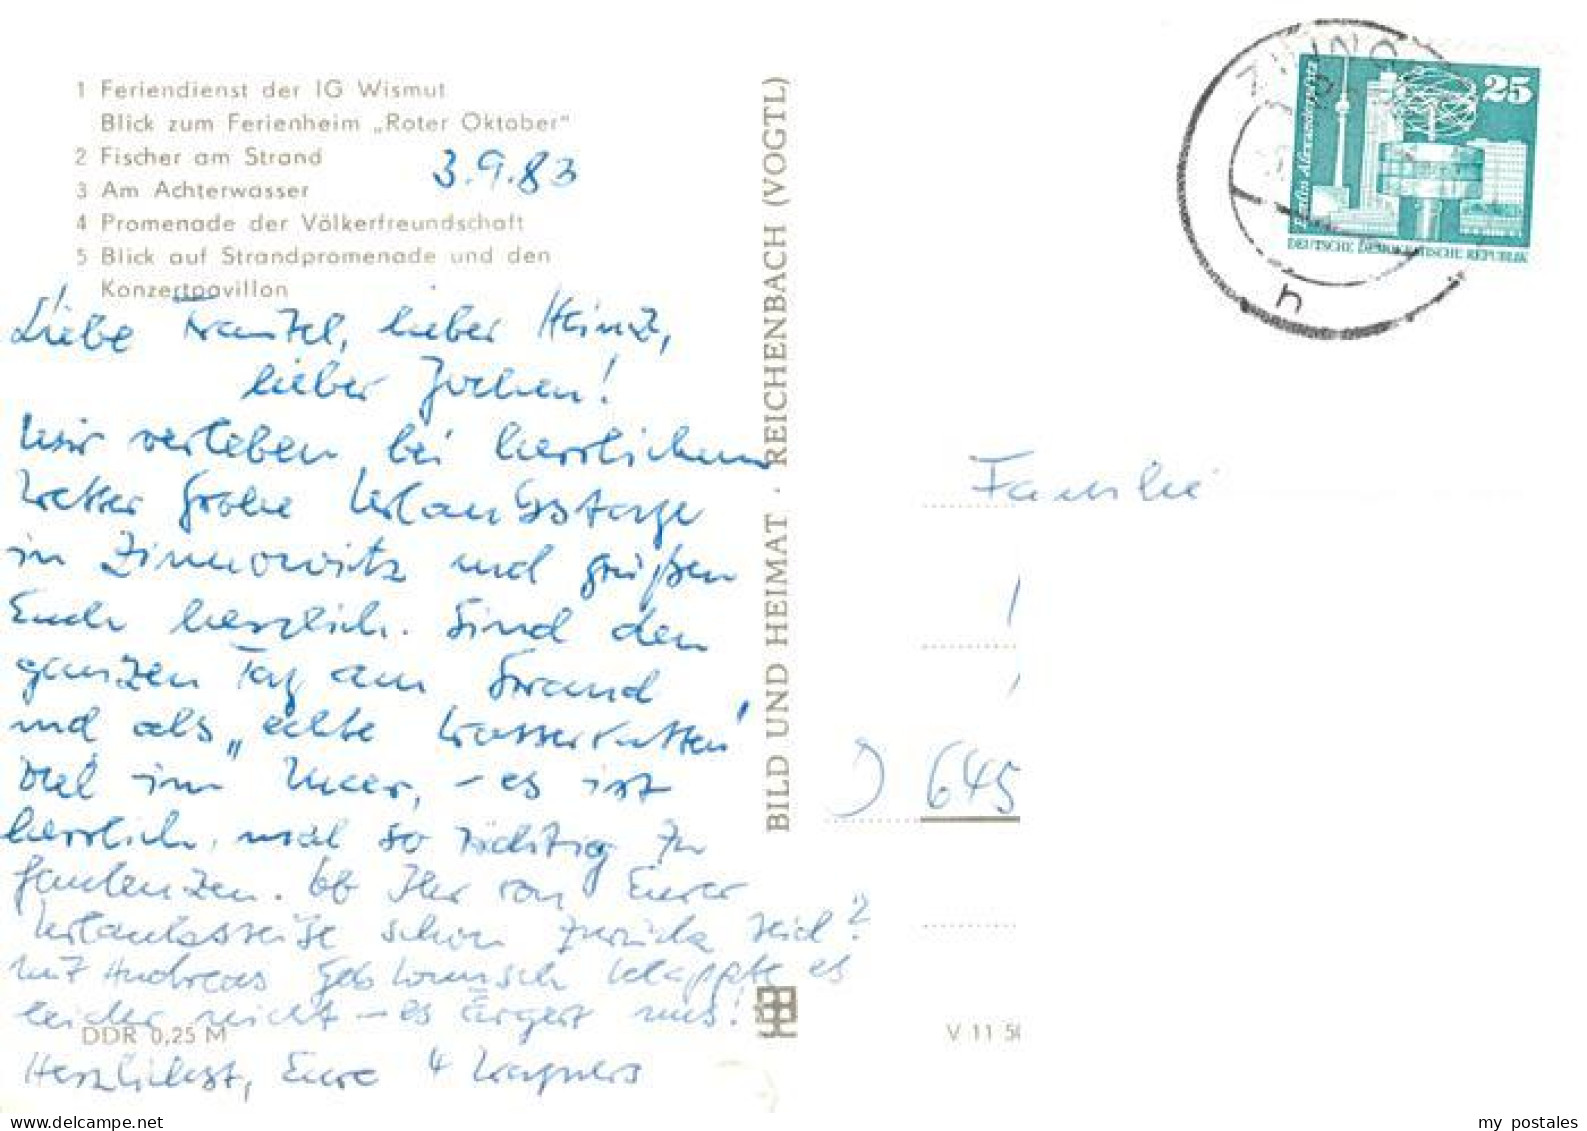 1 Feriendienst der IG Wismut
Blick zum Ferienheim „Roter Oktober"
2 Fischer am Strand
3 Am Achterwasser
4 Promenade der Völkerfreundschaft
5 Blick auf Strandpromenade und den
Konzertpavillon
3.9.83
Liebe Trautel, lieber Heinz,
lieber Jochen!
Wir verleben bei herrlichem
Wetter frohe Urlaubstage
in Zinnowitz und grüßen
Euch herzlich. Sind den
ganzen Tag am Strand
und als „echte Wasserratten"
viel im Meer, – es ist
herrlich, mal so richtig zu
faulenzen. Ob Ihr von Eurer
Urlaubsreise schon zurück seid?
Mit Andreas Geb. Wunsch klappte es
leider nicht – es ärgert uns!
Herzlichst, Eure 4 Wagners
DDR 0,25 M
BILD UND HEIMAT · REICHENBACH (VOGTL)
V 11 50
25
Berlin Alexanderplatz
DEUTSCHE DEMOKRATISCHE REPUBLIK
h
Familie
645
my postales